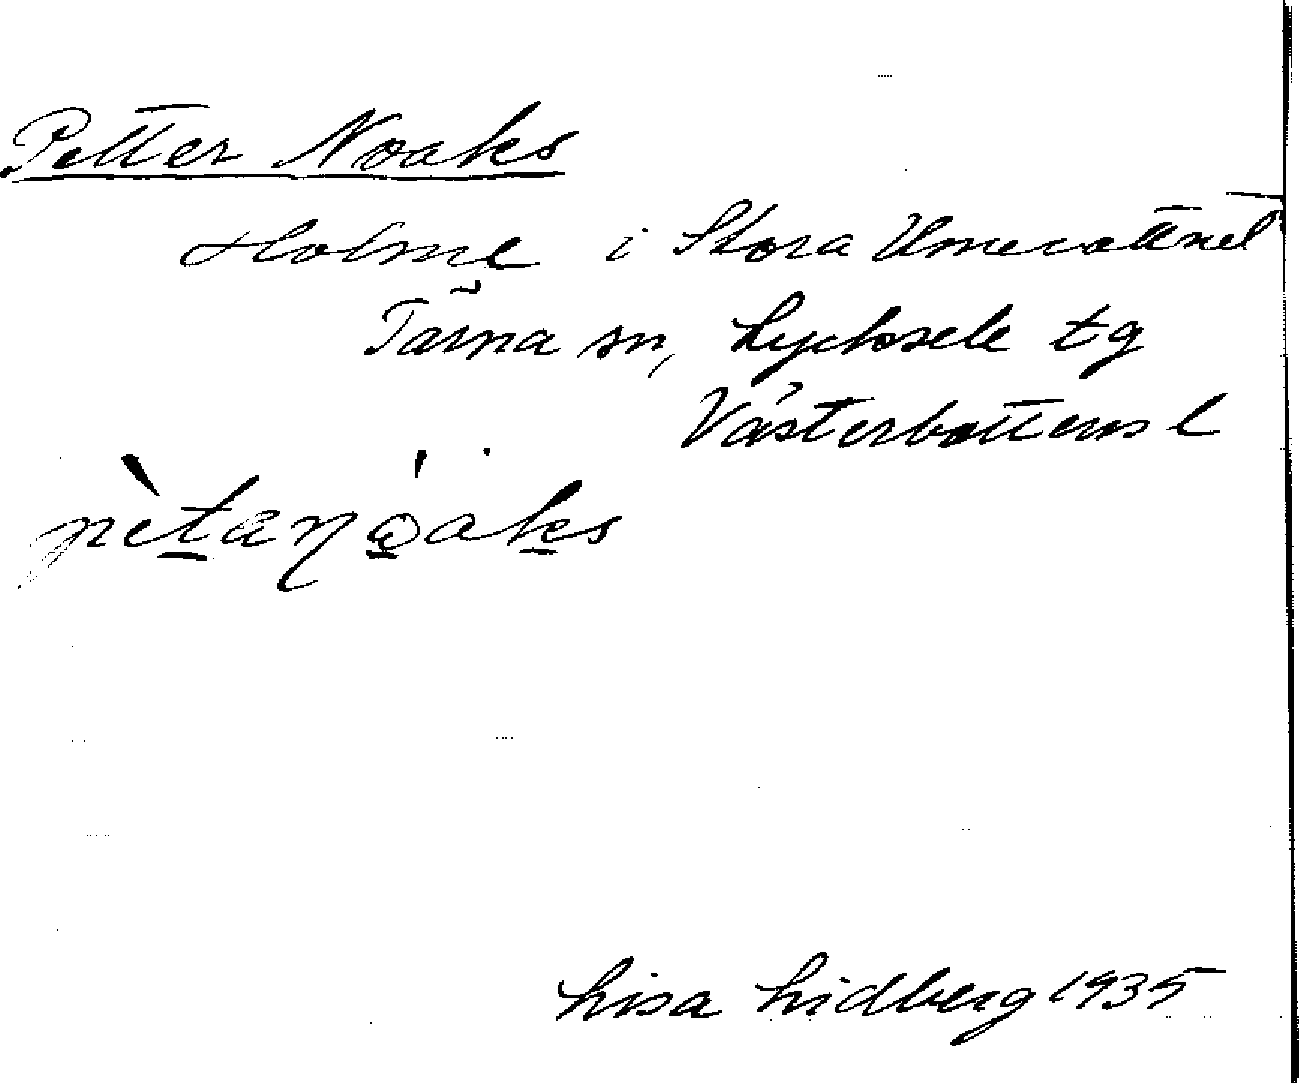 Petter Noaks
Holme i Stora Umevattnet
Tärna sn, Lycksele tg
Västerbottens l
Lisa Lidberg 1935